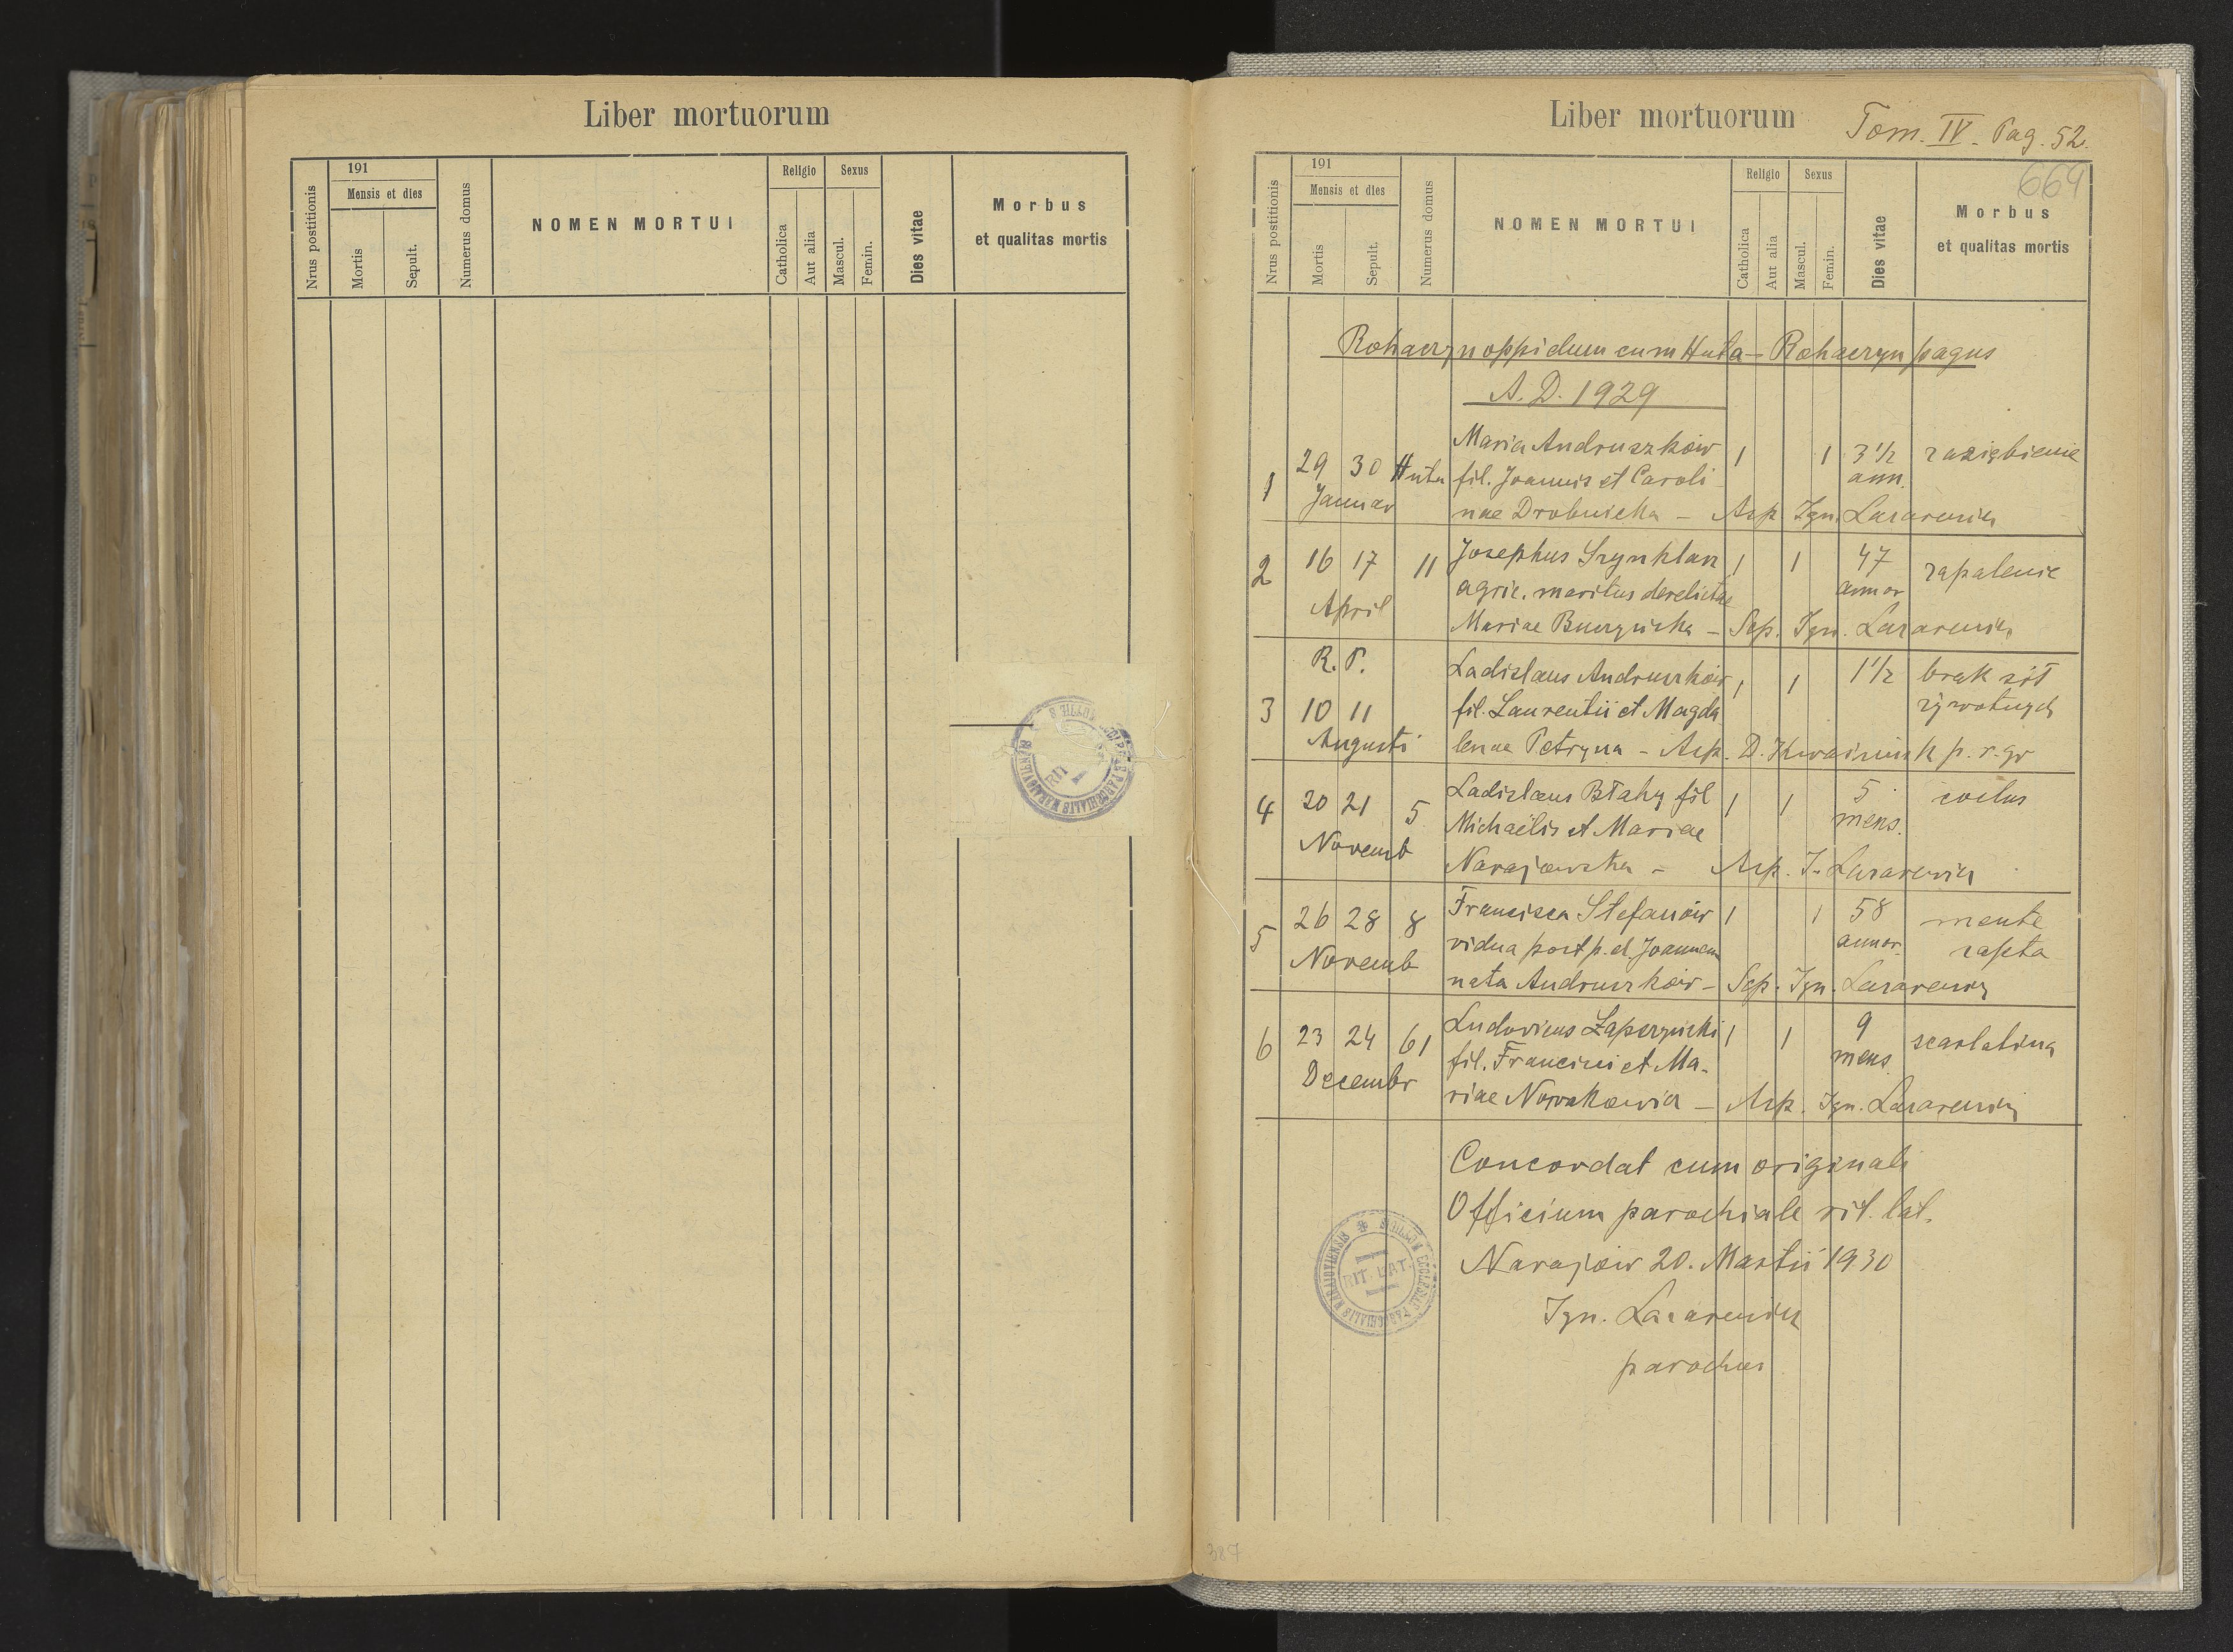 Liber mortuorum
Nrus postitionis
191
Mensis et dies
Mortis
Sepult.
Numerus domus
NOMEN MORTUI
Religio
Catholica
Aut alia
Sexus
Mascul.
Femin.
Dies vitae
Morbus
et qualitas mortis
RIT
Liber mortuorum
Tom. IV. Pag. 52.
664
Nrus postitionis
191
Mensis et dies
Mortis
Sepult.
Numerus domus
NOMEN MORTUI
Religio
Catholica
Aut alia
Sexus
Mascul.
Femin.
Dies vitae
Morbus
et qualitas mortis
Rohaczyn oppidum cum Huta – Rohaczyn pagus
A. D. 1929
Maria Andruszków
1 29 30 Huta fil. Joannis et Caroli 1 1 3 1/2 zaziębienie
Januar ann.
nae Drobnicka – Asp. Ign. Lazarewicz
2 16 17 11 Josephus Szynklarz 1 1 47 zapalenie
April agric. maritus derelictae annor
Mariae Buczyńska – Sep. Ign. Lazarewicz
R. P. Ladislaus Andruszków 1 1 1 1/2 brak sił
3 10 11 fil. Laurentii et Magda żywotnych
Augusti lenae Petryna – Asp. D. p. r. gr
4 20 21 5 Ladislaus Błahy fil 1 1 5 coclus
Michaëlis et Mariae mens.
Novemb Narajowska – Asp. I. Lazarewicz
5 26 28 8 Francisca Stefanów 1 1 58 mente
Novemb vidua post p. d. Joannem annor. rapta
nata Andruszków – Sep. Ign. Lazarewicz
6 23 24 61 Ludovicus Zaperzyński 1 1 9 scarlatina
Decembr fil. Francisci et Ma- mens.
riae Nowakowicz – Asp. Ign. Lazarewicz
Concordat cum originali
Officium parochiale rit. lat.
Narajów 20. Martii 1930
Ign. Lazarewicz
parochus
RIT. LAT.
387